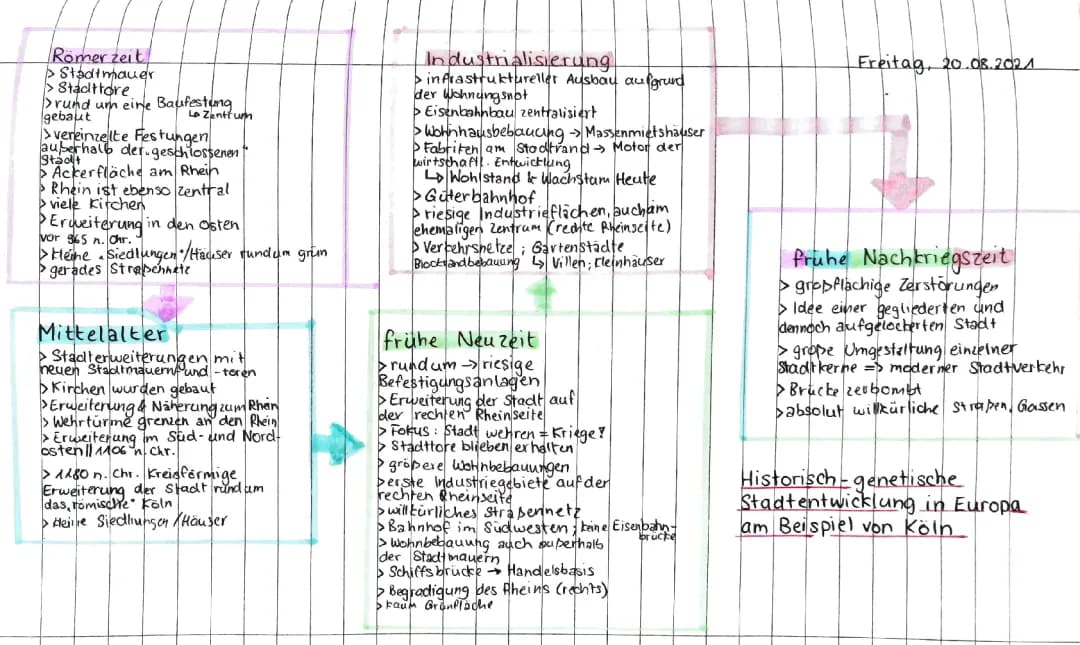 Römerzeit
> Stadtmauer
> Stadttore
> rund um eine Baufestung
gebaut ↳ Zentrum
> vereinzelte Festungen
außerhalb der "geschlossenen"
Stadt
> Ackerfläche am Rhein
> Rhein ist ebenso zentral
> viele Kirchen
> Erweiterung in den Osten
vor 965 n. Chr.
> kleine "Siedlungen"/Häuser rundum grün
> gerades Straßennetz
Mittelalter
> Stadterweiterungen mit
neuen Stadtmauern und -toren
> Kirchen wurden gebaut
> Erweiterung & Näherung zum Rhein
> Wehrtürme grenzen an den Rhein
> Erweiterung im Süd- und Nord-
osten || 1106 n. Chr.
> 1180 n. Chr. Kreisförmige
Erweiterung der Stadt rund um
das "römische" Köln
> kleine Siedlungen/Häuser
frühe Neuzeit
> rundum → riesige
Befestigungsanlagen
> Erweiterung der Stadt auf
der rechten Rheinseite
> Fokus: Stadt wehren = Kriege?
> Stadttore blieben erhalten
> größere Wohnbebauungen
> erste Industriegebiete auf der
rechten Rheinseite
> willkürliches Straßennetz
> Bahnhof im Südwesten; keine Eisenbahn-
brücke
> Wohnbebauung auch außerhalb
der Stadtmauern
> Schiffsbrücke → Handelsbasis
> Begradigung des Rheins (rechts)
> kaum Grünfläche
Industrialisierung
> infrastruktureller Ausbau aufgrund
der Wohnungsnot
> Eisenbahnbau zentralisiert
> Wohnhausbebauung → Massenmietshäuser
> Fabriken am Stadtrand → Motor der
wirtschaftl. Entwicklung
↳ Wohlstand & Wachstum Heute
> Güterbahnhof
> riesige Industrieflächen, auch am
ehemaligen Zentrum (rechte Rheinseite)
> Verkehrsnetze; Gartenstädte
Blockrandbebauung ↳ Villen; Kleinhäuser
Freitag, 20.08.2021
frühe Nachkriegszeit
> großflächige Zerstörungen
> Idee einer gegliederten und
dennoch aufgelockerten Stadt
> große Umgestaltung einzelner
Stadtkerne => moderner Stadtverkehr
> Brücke zerbombt
> absolut willkürliche Straßen, Gassen
Historisch-genetische
Stadtentwicklung in Europa
am Beispiel von Köln